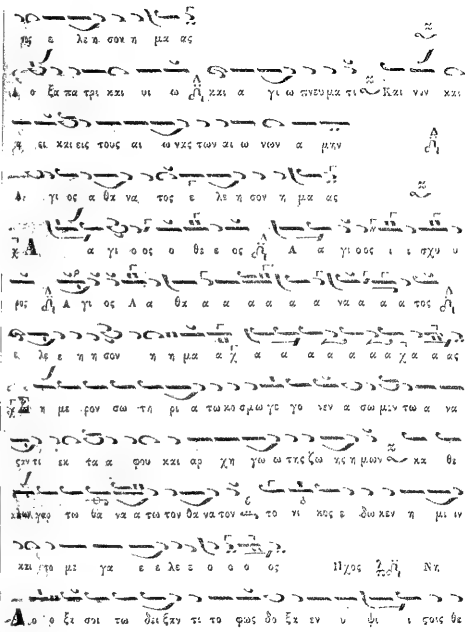 ρος ε λε η σον η μα ας
ο ξα πα τρι και υι ω και α γι ω πνευ μα τι Και νυν και
α ει και εις τους αι ω νας των αι ω νων α μην
γι ος α θα να τος ε λε η σον η μα ας
Α α γι ο ος ο θε ε ος Α α γι ο ος ι ι σχυ υ
ρος Α γι ος Α α θα α α α α α να α α α τος
ε λε ε η η σον η η μα α χα α α α α α α χα α ας
Σ η με ρον σω τη ρι α τω κο σμω γε γο νεν α σω μεν τω α να
ςαν τι εκ τα α φου και αρ χη γω ω της ζω ης η μων κα θε
γαρ τω θα να α τω τον θα να τον το νι κος ε δω κεν η μι ιν
και το με γα ε ε λε ε ο ο ο ος Ηχος Νη
ο ξα σοι τω δει ξαν τι το φως δο ξα εν υ ψι ι τοις θε